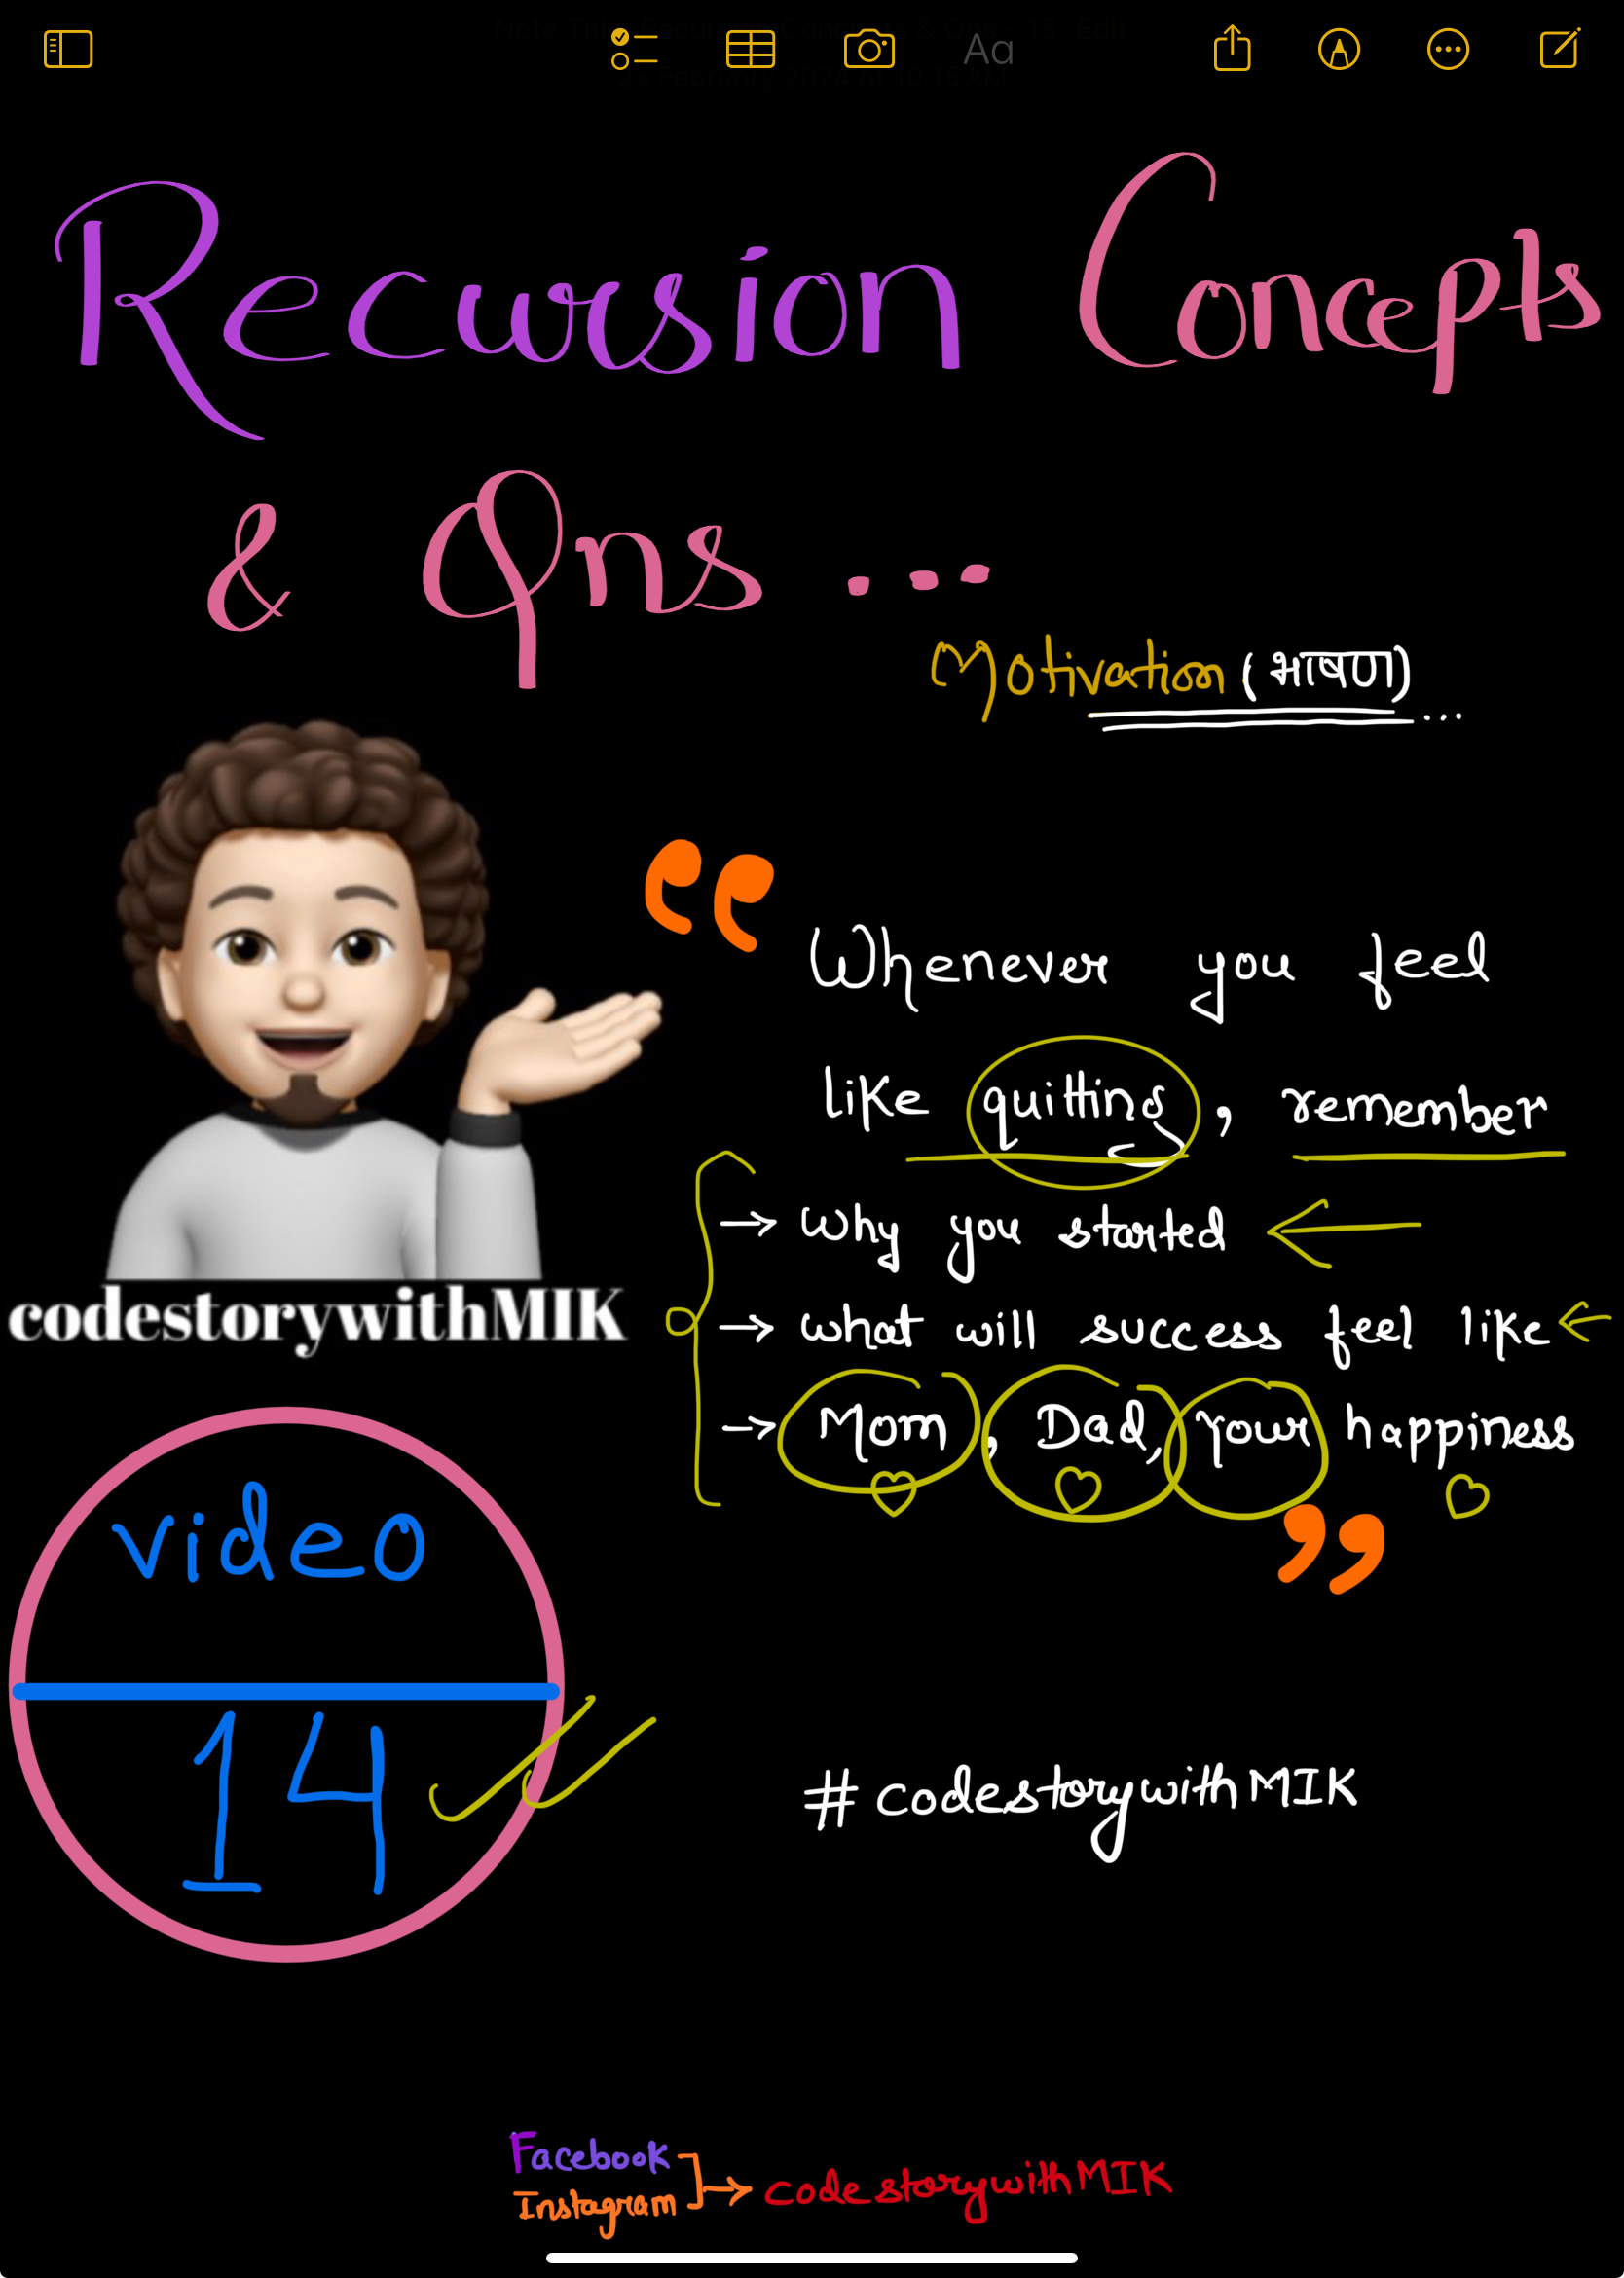 Aa
Recursion Concepts
& Qns ...
Motivation (भाषण) ...
“ Whenever you feel
like quitting, remember
→ why you started
→ what will success feel like
→ Mom, Dad, Your happiness ”
codestorywithMIK
video
14
# codestorywithMIK
Facebook
Instagram → codestorywithMIK